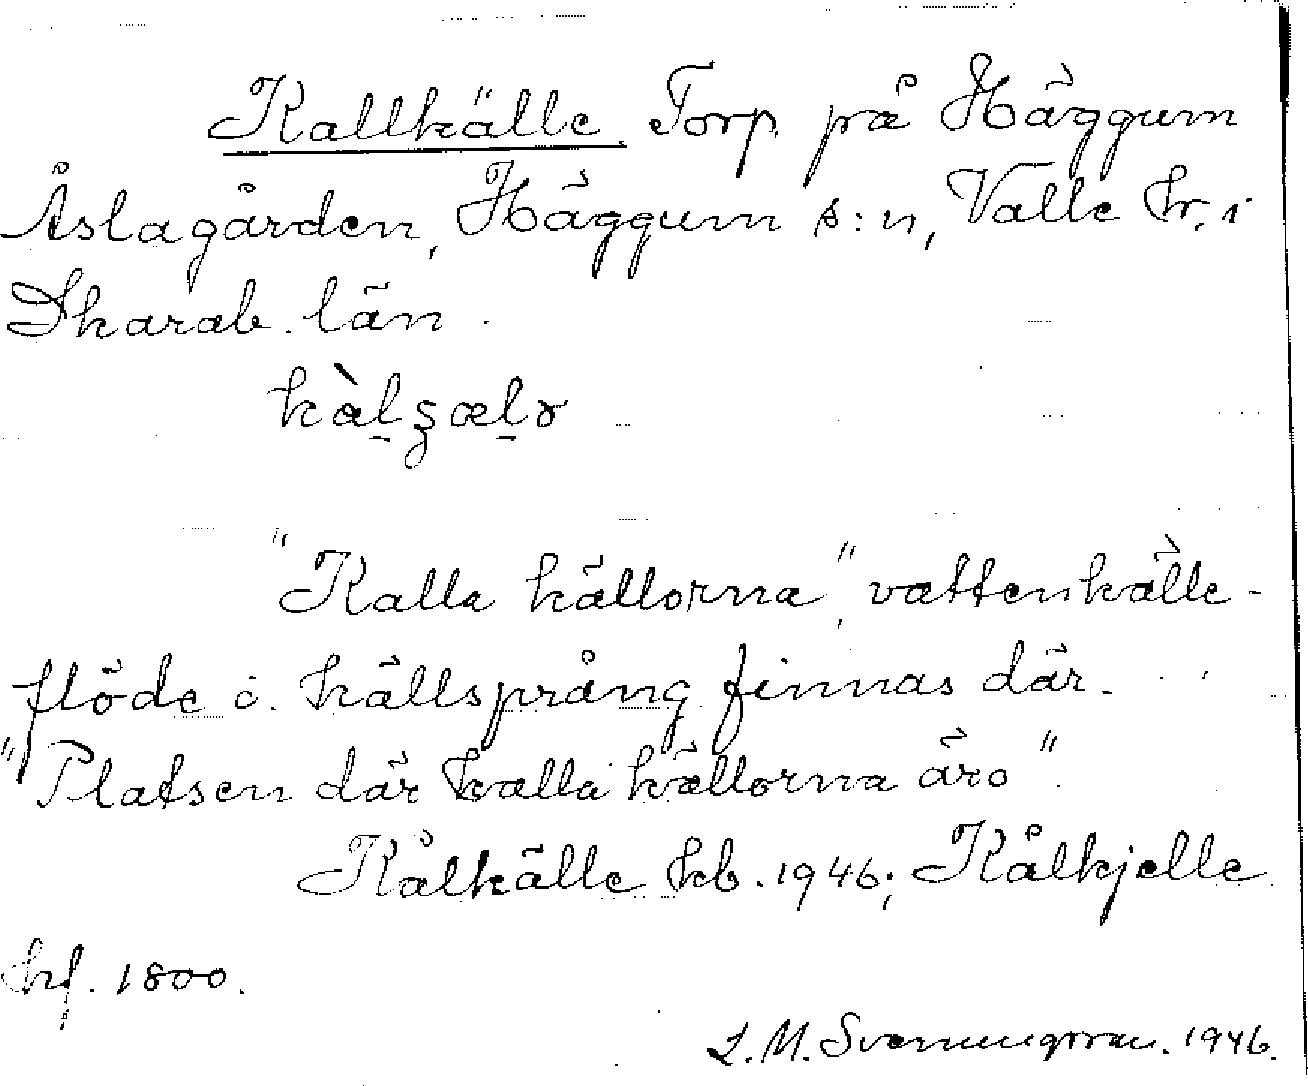 Kallkälle Torp på Häggum
Åslagården, Häggum s:n, Valle hr. i
Skarab. län.
kàl̠ʒæl̠ɤ
"Kalla källorna", vattenkälle-
flöde o. källsprång finnas där.
"Platsen där kalla källorna äro".
Kålkälle kb. 1946; Kålkjelle
hf. 1800.
L.M. Svenungsson. 1946.